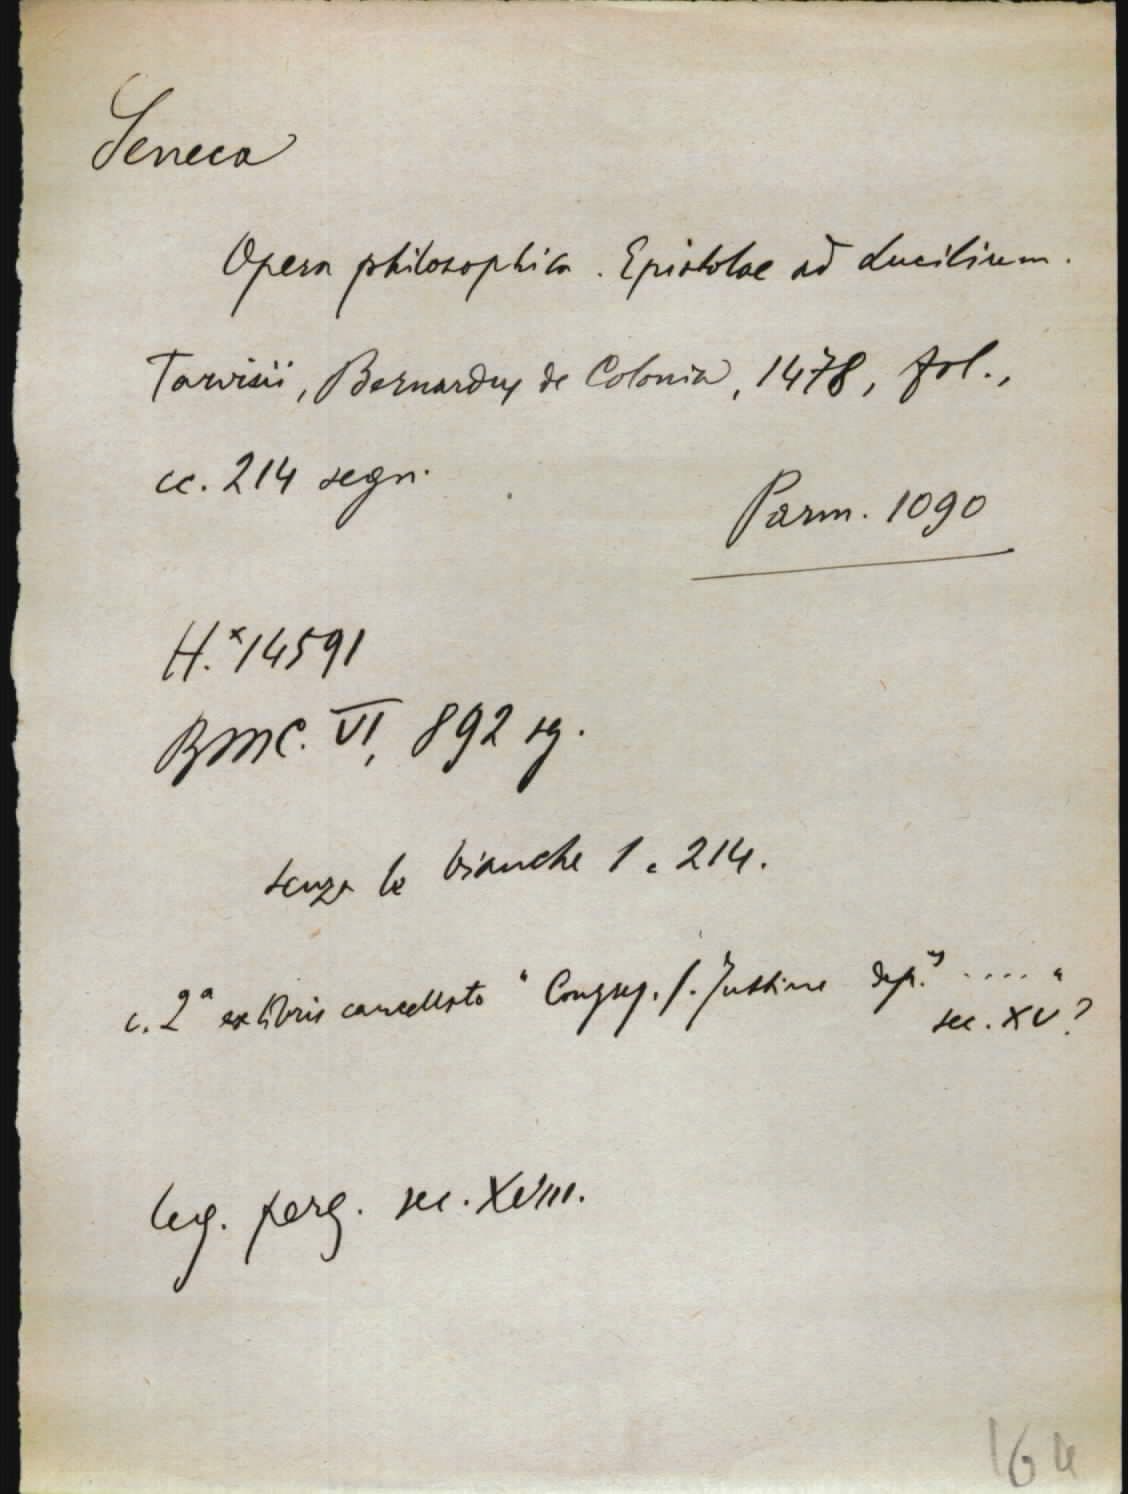 Seneca
Opera philosophica. Epistolae ad Lucilium.
Tarvisii, Bernardus de Colonia, 1478, fol.,
cc. 214 segn.
Parm. 1090
H.*14591
BMC. VI, 892 sg.
senza le bianche 1 e 214.
c. 2a ex libris cancellato "Congreg. S. Justine dep." .... "
sec. XV?
Leg. perg. sec. XVIII.